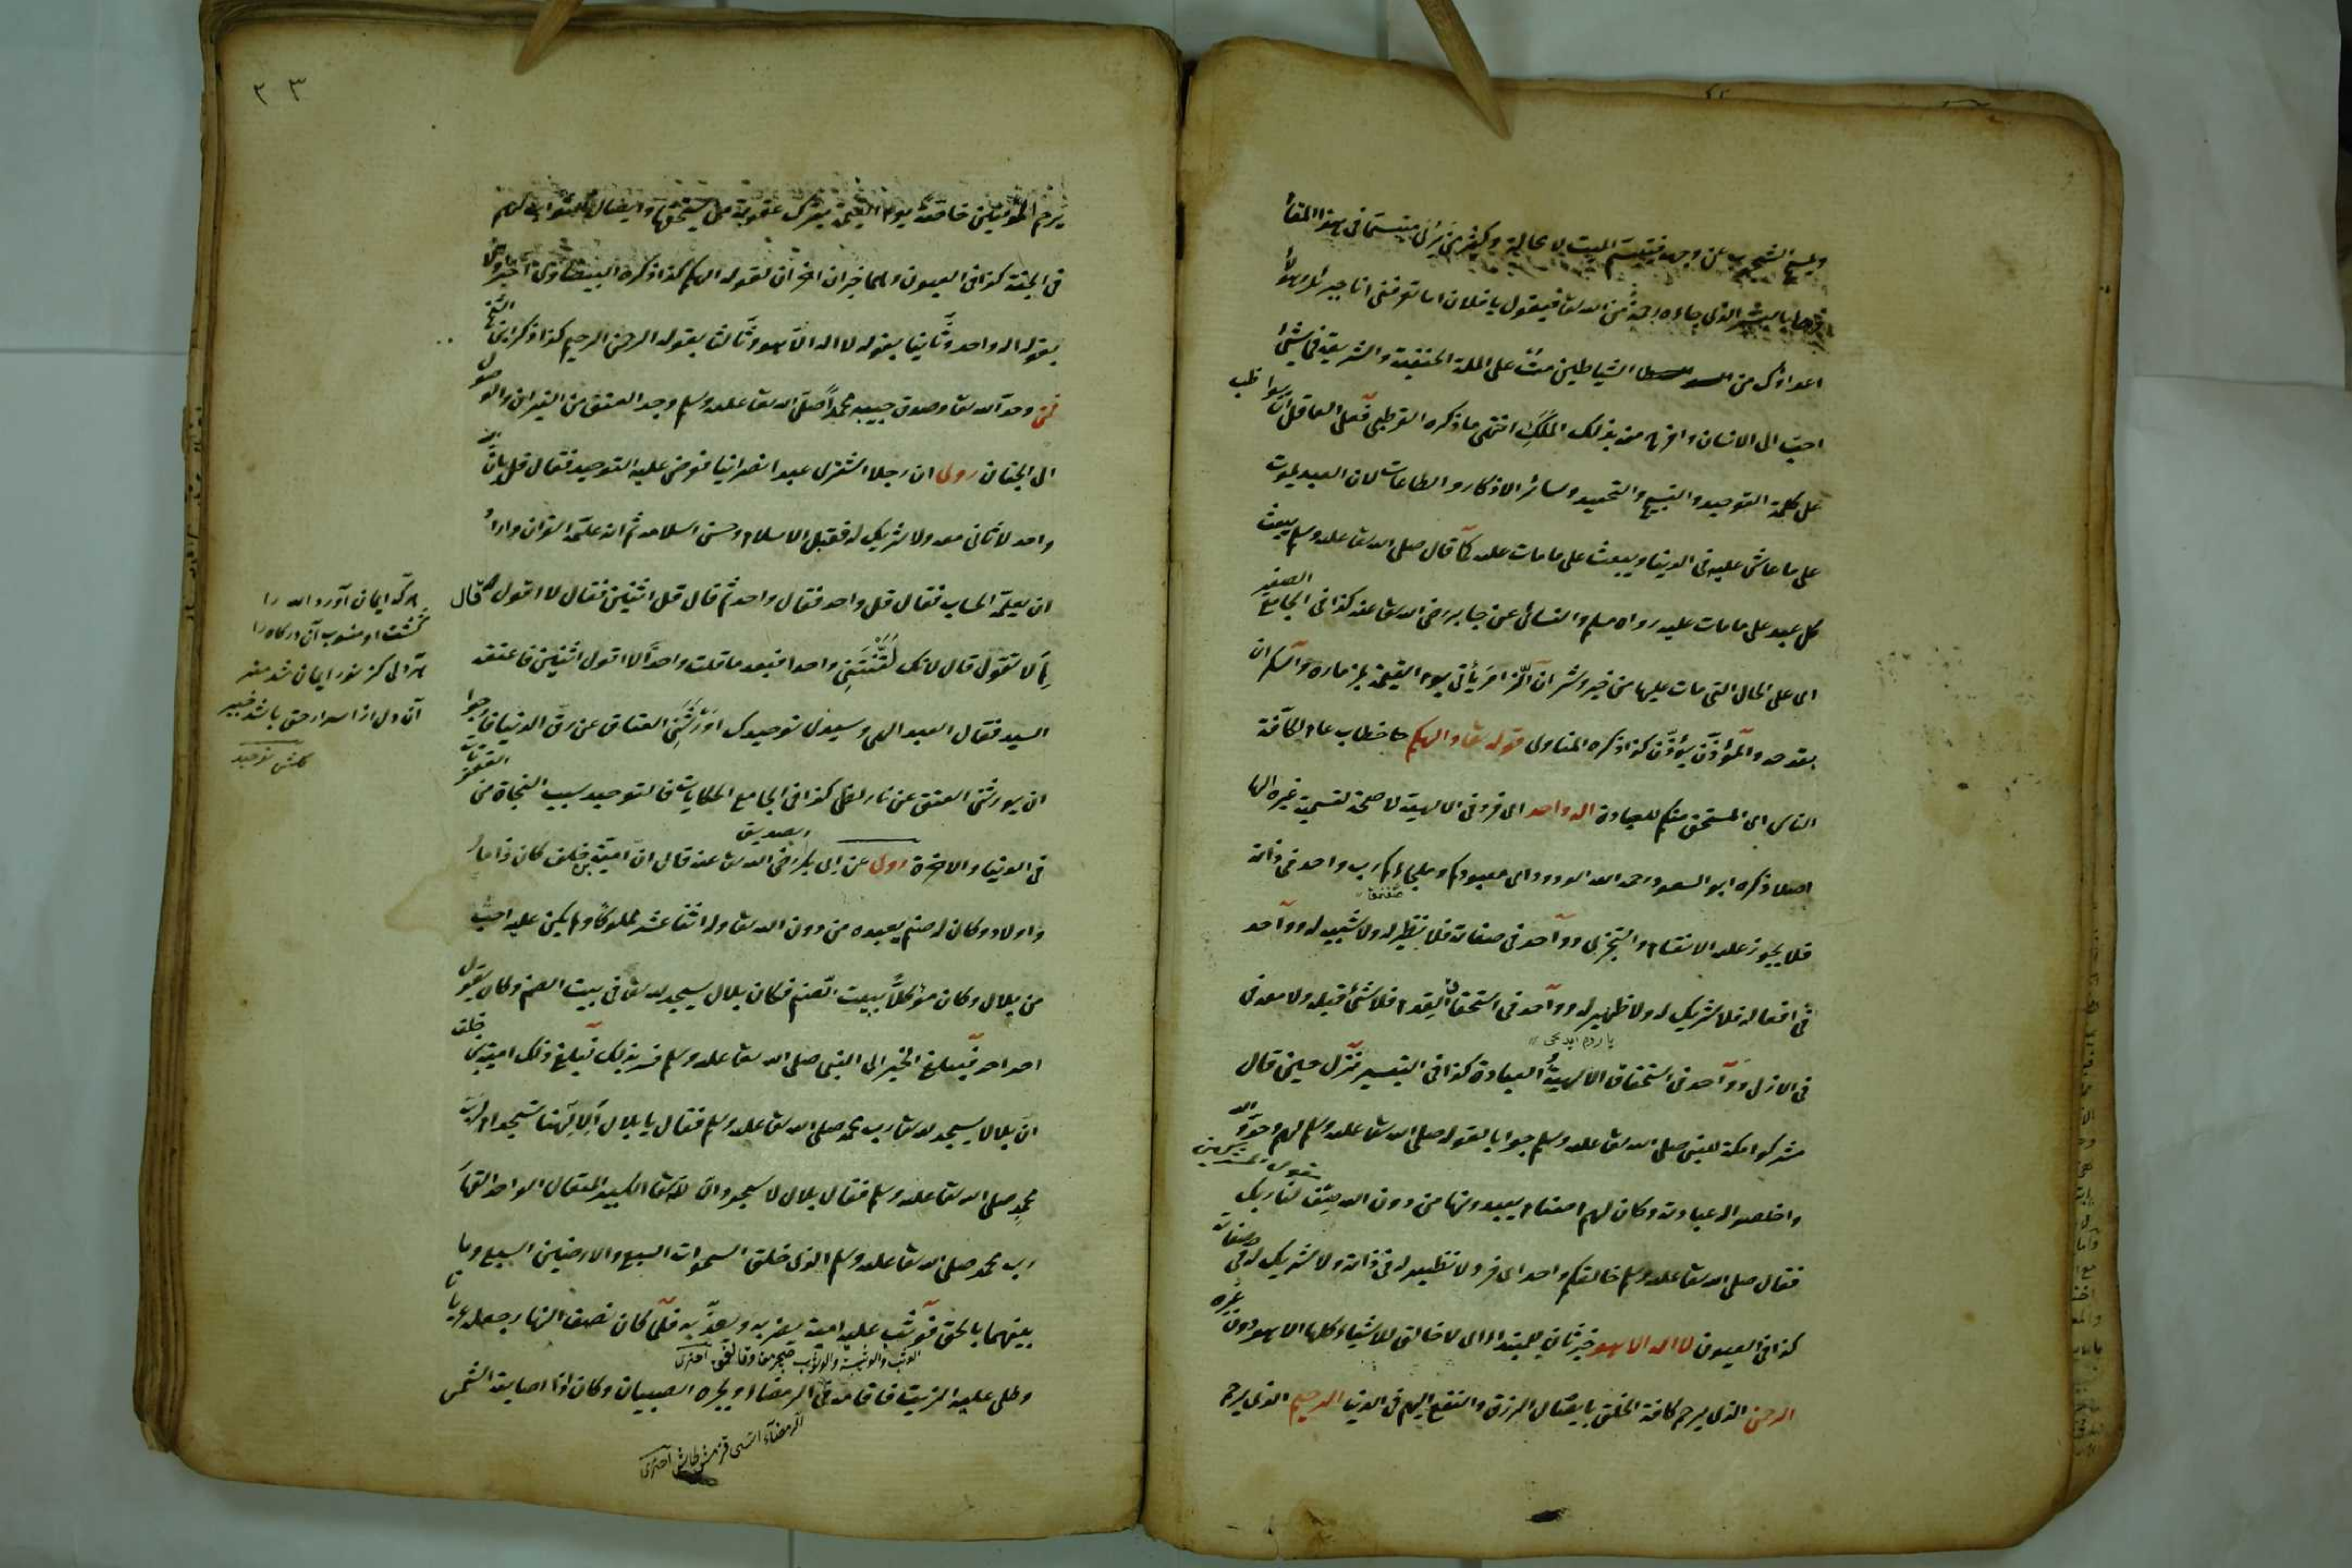 ويمسح الشحوب عن وجهه فيتبسم الميت لا محالة وكثير من يرى متبسما في هذا المقام
فرحا بالبشير الذى جاءه رحمة من الله تعا فيقول يا فلان اما تعرفنى انا جبرائل وهؤلاء
اعداؤك من الشياطين مت على الملة الحنيفية والشريعة فما شئ
احب الى الانسان وافرح منه بذلك الملك انتهى ما ذكره القرطبى فعلى العاقل ان يواظب
على كلمة التوحيد والتسبيح والتحميد وسائر الاذكار والطاعات لان العبد يموت
على ما عاش عليه فى الدنيا ويبعث على ما مات عليه كما قال صلى الله تعا عليه وسلم يبعث
كل عبد على ما مات عليه رواه مسلم والنسائى عن جابر رضى الله تعا عنه كذا فى الجامع الصغير
اى على الحال التى مات عليها من خير وشر ان الزامر يأتى يوم القيمة بمزماره والسكران
بقدحه والمؤذن يؤذن كذا ذكره المناوى قوله تعا والهكم خطاب عام لكافة
الناس اى المستحق منكم للعبادة اله واحد اى فرد فى الالهية لا صحة لتسمية غيره الها
اصلا ذكره ابو السعود رحمه الله الودود اى معبودكم وملجاءكم رب واحد فى ذاته
فلا يجوز عليه الانقسام والتجزى وواحد فى صفاته فلا نظير له ولا شبيه له وواحد
فى افعاله فلا شريك له ولا ظهير له وواحد فى استحقاق القدم فلا شئ قبله ولا معه فى
فى الازل وواحد فى استحقاق الالهية العبادة كذا فى التيسير نزل حين قال
مشركوا مكة للنبى صلى الله تعا عليه وسلم جوابا لقوله صلى الله تعا عليه وسلم لهم وحدوا الله
واخلصوا له عبادته وكان لهم اصنام يعبدونها من دون الله صف لنا ربك
فقال صلى الله تعا عليه وسلم خالقكم واحد اى فرد لا نظير له فى ذاته ولا شريك له فى صفاته
كذا فى العيون لا اله الا هو خبر ثان للمبتداء اى لا خالق للاشياء كلها الا هو دون غيره
الرحمن الذى يرحم كافة الخلق بايصال الرزق والنفع اليهم فى الدنيا الرحيم الذى يرحم
٢٣
يرحم المؤمنين خاصة يوم القيمة بترك عقوبة من يستحقها وايصال الثواب لهم
فى الجنة كذا فى العيون وهما خبران اخران لقوله الهكم كذا ذكره البيضاوى اخبر اولا
بقوله اله واحد وثانيا بقوله لا اله الا هو وثالثا بقوله الرحمن الرحيم كذا ذكر ابن الشيخ
فمن وحد الله تعا وصدق حبيبه محمدا صلى الله تعا عليه وسلم وجد العتق من النيران والوصول
الى الجنان روى ان رجلا اشترى عبدا نصرانيا فعرض عليه التوحيد فقال قل بان
واحد لا ثانى معه ولا شريك له فقبل الاسلام وحسن اسلامه ثم انه علمه القران واراد
ان يعلمه الحساب فقال قل واحد فقال واحد ثم قال قل اثنين فقال لا اقول قال
لم لا تقول قال لانك لقنتنى واحدا فبعد ما قلت واحدا لا اقول اثنين فاعتقه
السيد فقال العبد الهى وسيدى توحيدك اورثنى العتاق عن رق الدنيا فارجوا
ان يورثنى العتق عن نار لظى كذا فى الجامع الحكايات فالتوحيد سبب النجاة من العقوبات
فى الدنيا والاخرة روى عن ابى بكر الصديق رضى الله تعا عنه قال ان امية بن خلف كان ذا مال
واولاد وكان له صنم يعبده من دون الله تعا وله اثنا عشر مملوكا ولم يكن عليه احب
من بلال وكان مؤكلا ببيت الصنم فكان بلال يسجد لله تعا فى بيت الصنم وكان يقول
احد احد فبلغ الخبر الى النبى صلى الله تعا عليه وسلم فسر بذلك فبلغ ذلك امية بن خلف
ان بلالا يسجد لله تعا رب محمد صلى الله تعا عليه وسلم فقال يا بلال ألالهتنا تسجد ام لرب
محمد صلى الله تعا عليه وسلم فقال بلال لا سجود الا لله تعا الكبير المتعال الواحد القهار
رب محمد صلى الله تعا عليه وسلم الذى خلق السموات السبع والارضين السبع وما
بينهما بالحق فوثب عليه امية يضربه ويعذبه فلما كان نصف النهار جعله عريانا
وطلى عليه الزيت فاقامه فى الرمضاء ويجره الصبيان وكان اذا اصابه الشمس
الوثب والوثبة والوثوب اخترى
الرمضاء اسى قزمش طاش اخترى
هركه ايمان آورد الله را
گشت او منسوب آن درگاه را
هر دلى كز نور ايمان شد منير
آن دل از اسرار حق باشد خبير
گلشن توحيد